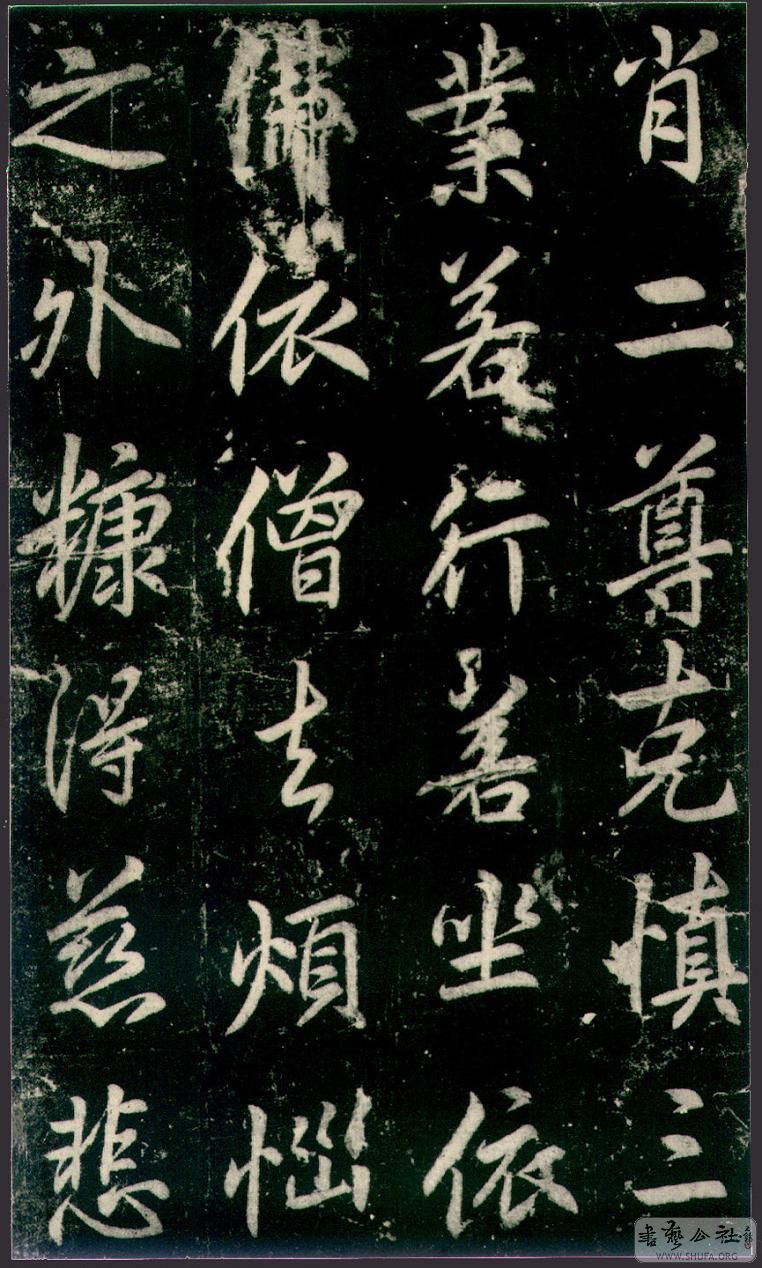 肖二尊克慎三
業若行若坐依
佛依僧去煩惱
之外糠得慈悲
書藝公社
WWW.SHUFA.ORG